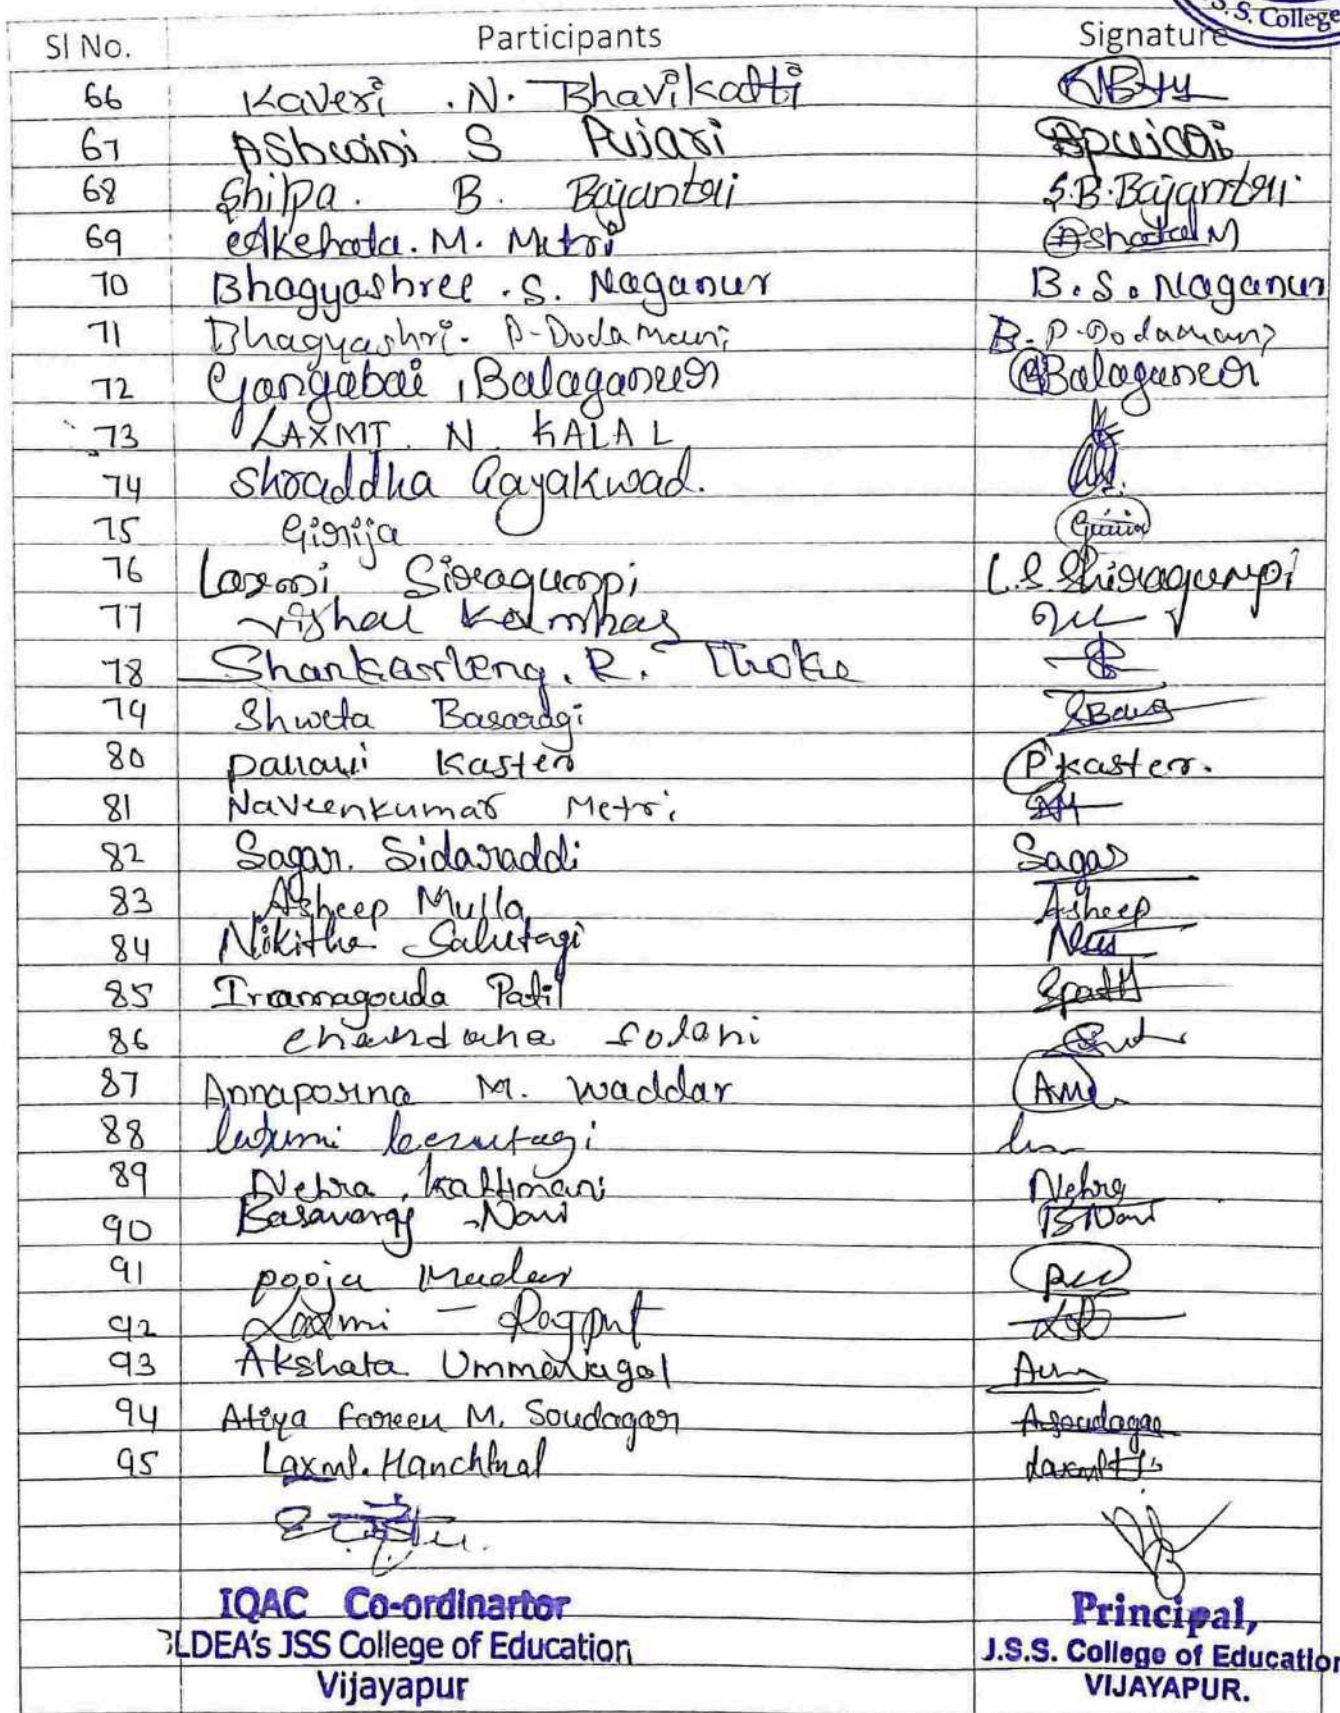 S. S. College
Sl No. Participants Signature
66 Kaveri .N. Bhavikatti
67 AShwini S Pujari Apujari
68 Shilpa. B. Bajantri S.B.Bajantri
69 Akshata. M. Metri Ashata M
70 Bhagyashree .S. Naganur B.S. Naganur
71 Bhagyashri. P-Dodamani B.P-Dodamani
72 Gangabai Balaganur Balaganur
73 LAXMI N KALAL
74 Shraddha Gayakwad.
75 Girija Girija
76 Laxmi Siragumpi L.S Shiragumpi
77 Vishal
78 Shankarling. R. Thoke
79 Shweta Basaragi
80 Pallavi Kaster P kaster.
81 Naveenkumar Metri
82 Sagar. Sidaraddi Sagar
83 Asheep Mulla Asheep
84 Nikitha Salutagi
85 Irannagouda Patil
86 Chandana Solani
87 Annaporna M. Waddar
88
89 Netra Kattimani Netra
90 Basavaraj Navi B Navi
91 pooja Madar
92 Laxmi - Rajput
93 Akshata Ummaragol
94 Atiya Fareen M. Soudagar Asoudagar
95 Laxmi. Hanchinal
IQAC Co-ordinartor
LDEA's JSS College of Education
Vijayapur
Principal,
J.S.S. College of Education
VIJAYAPUR.